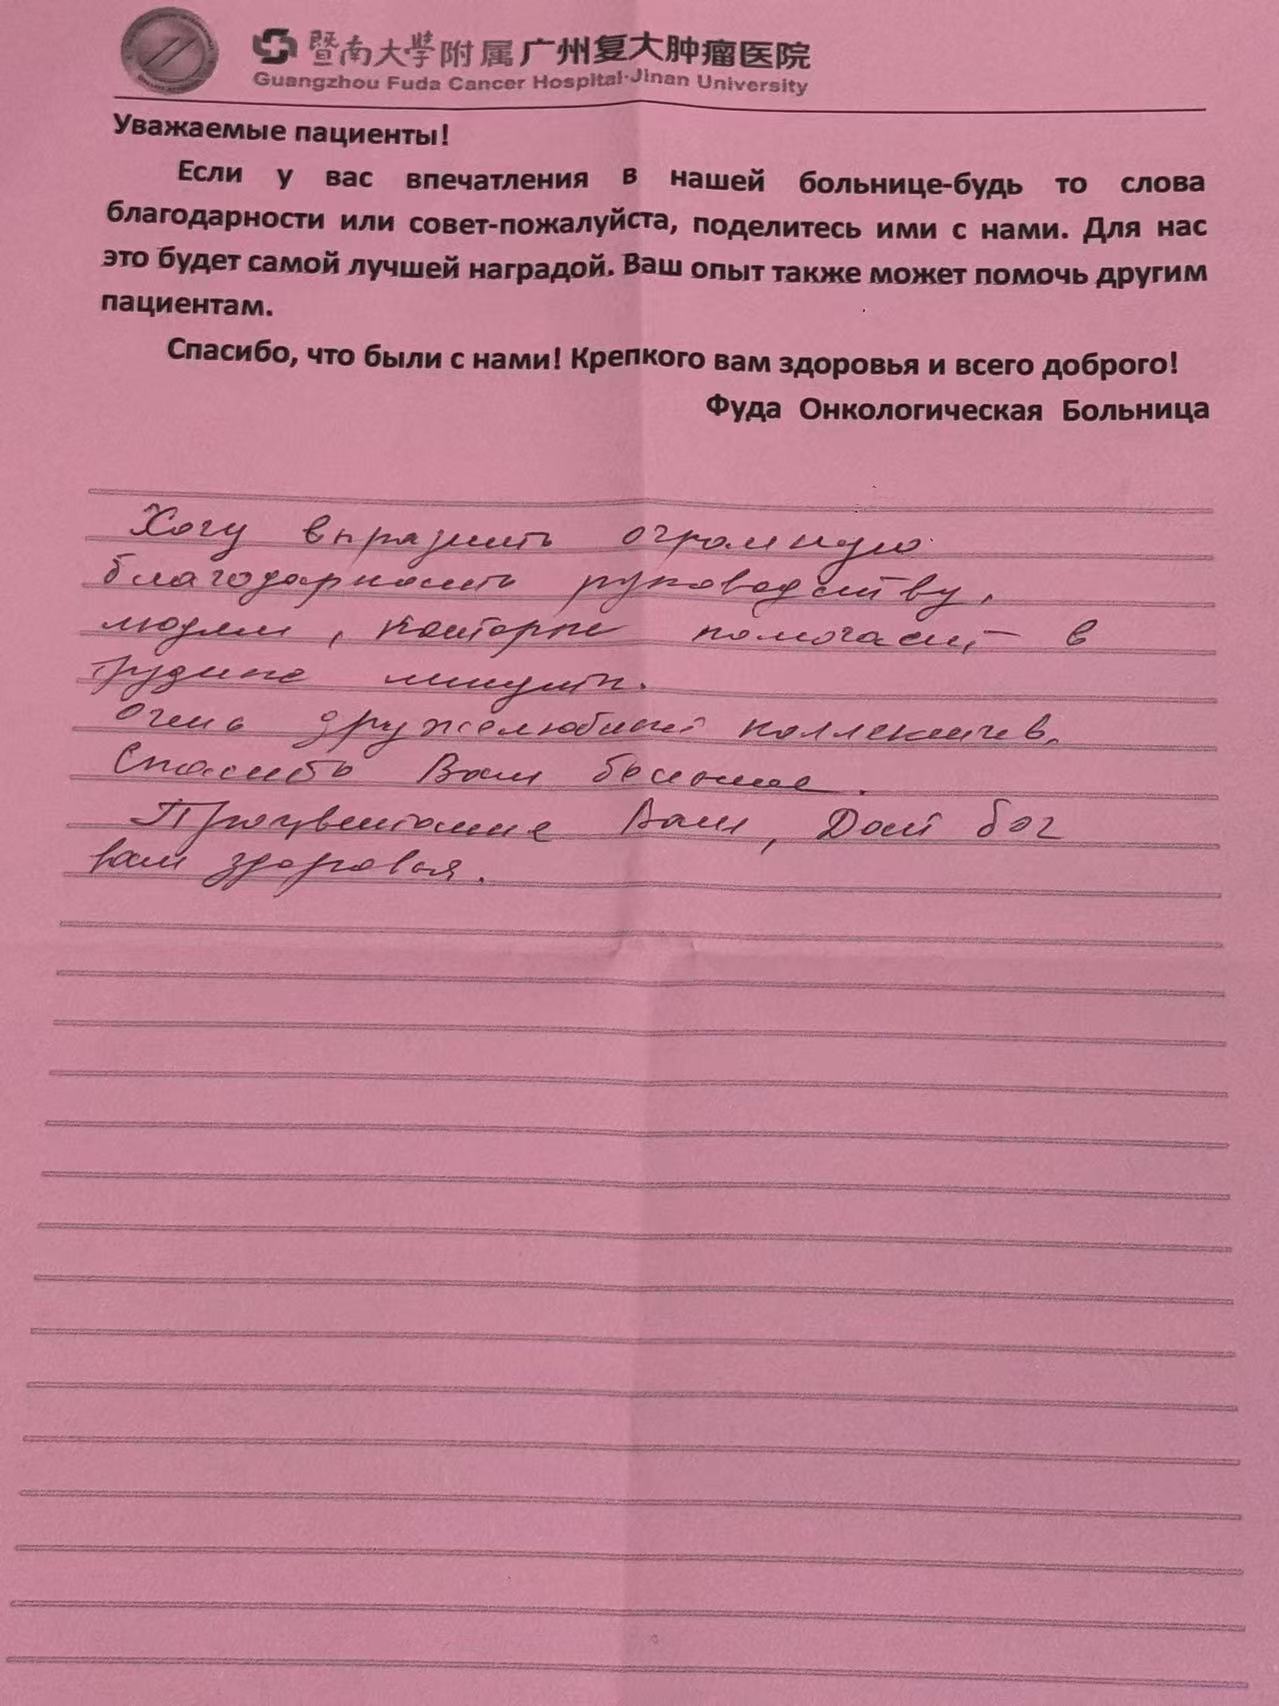 暨南大学附属广州复大肿瘤医院
Guangzhou Fuda Cancer Hospital·Jinan University
Уважаемые пациенты!
Если у вас впечатления в нашей больнице-будь то слова
благодарности или совет-пожалуйста, поделитесь ими с нами. Для нас
это будет самой лучшей наградой. Ваш опыт также может помочь другим
пациентам.
Спасибо, что были с нами! Крепкого вам здоровья и всего доброго!
Фуда Онкологическая Больница
Хочу выразить огромную
благодарность руководству,
людям, которые помогают в
трудные минуты.
Очень дружелюбный коллектив.
Спасибо Вам большое.
Процветание Вам, Дай бог
вам здоровья.